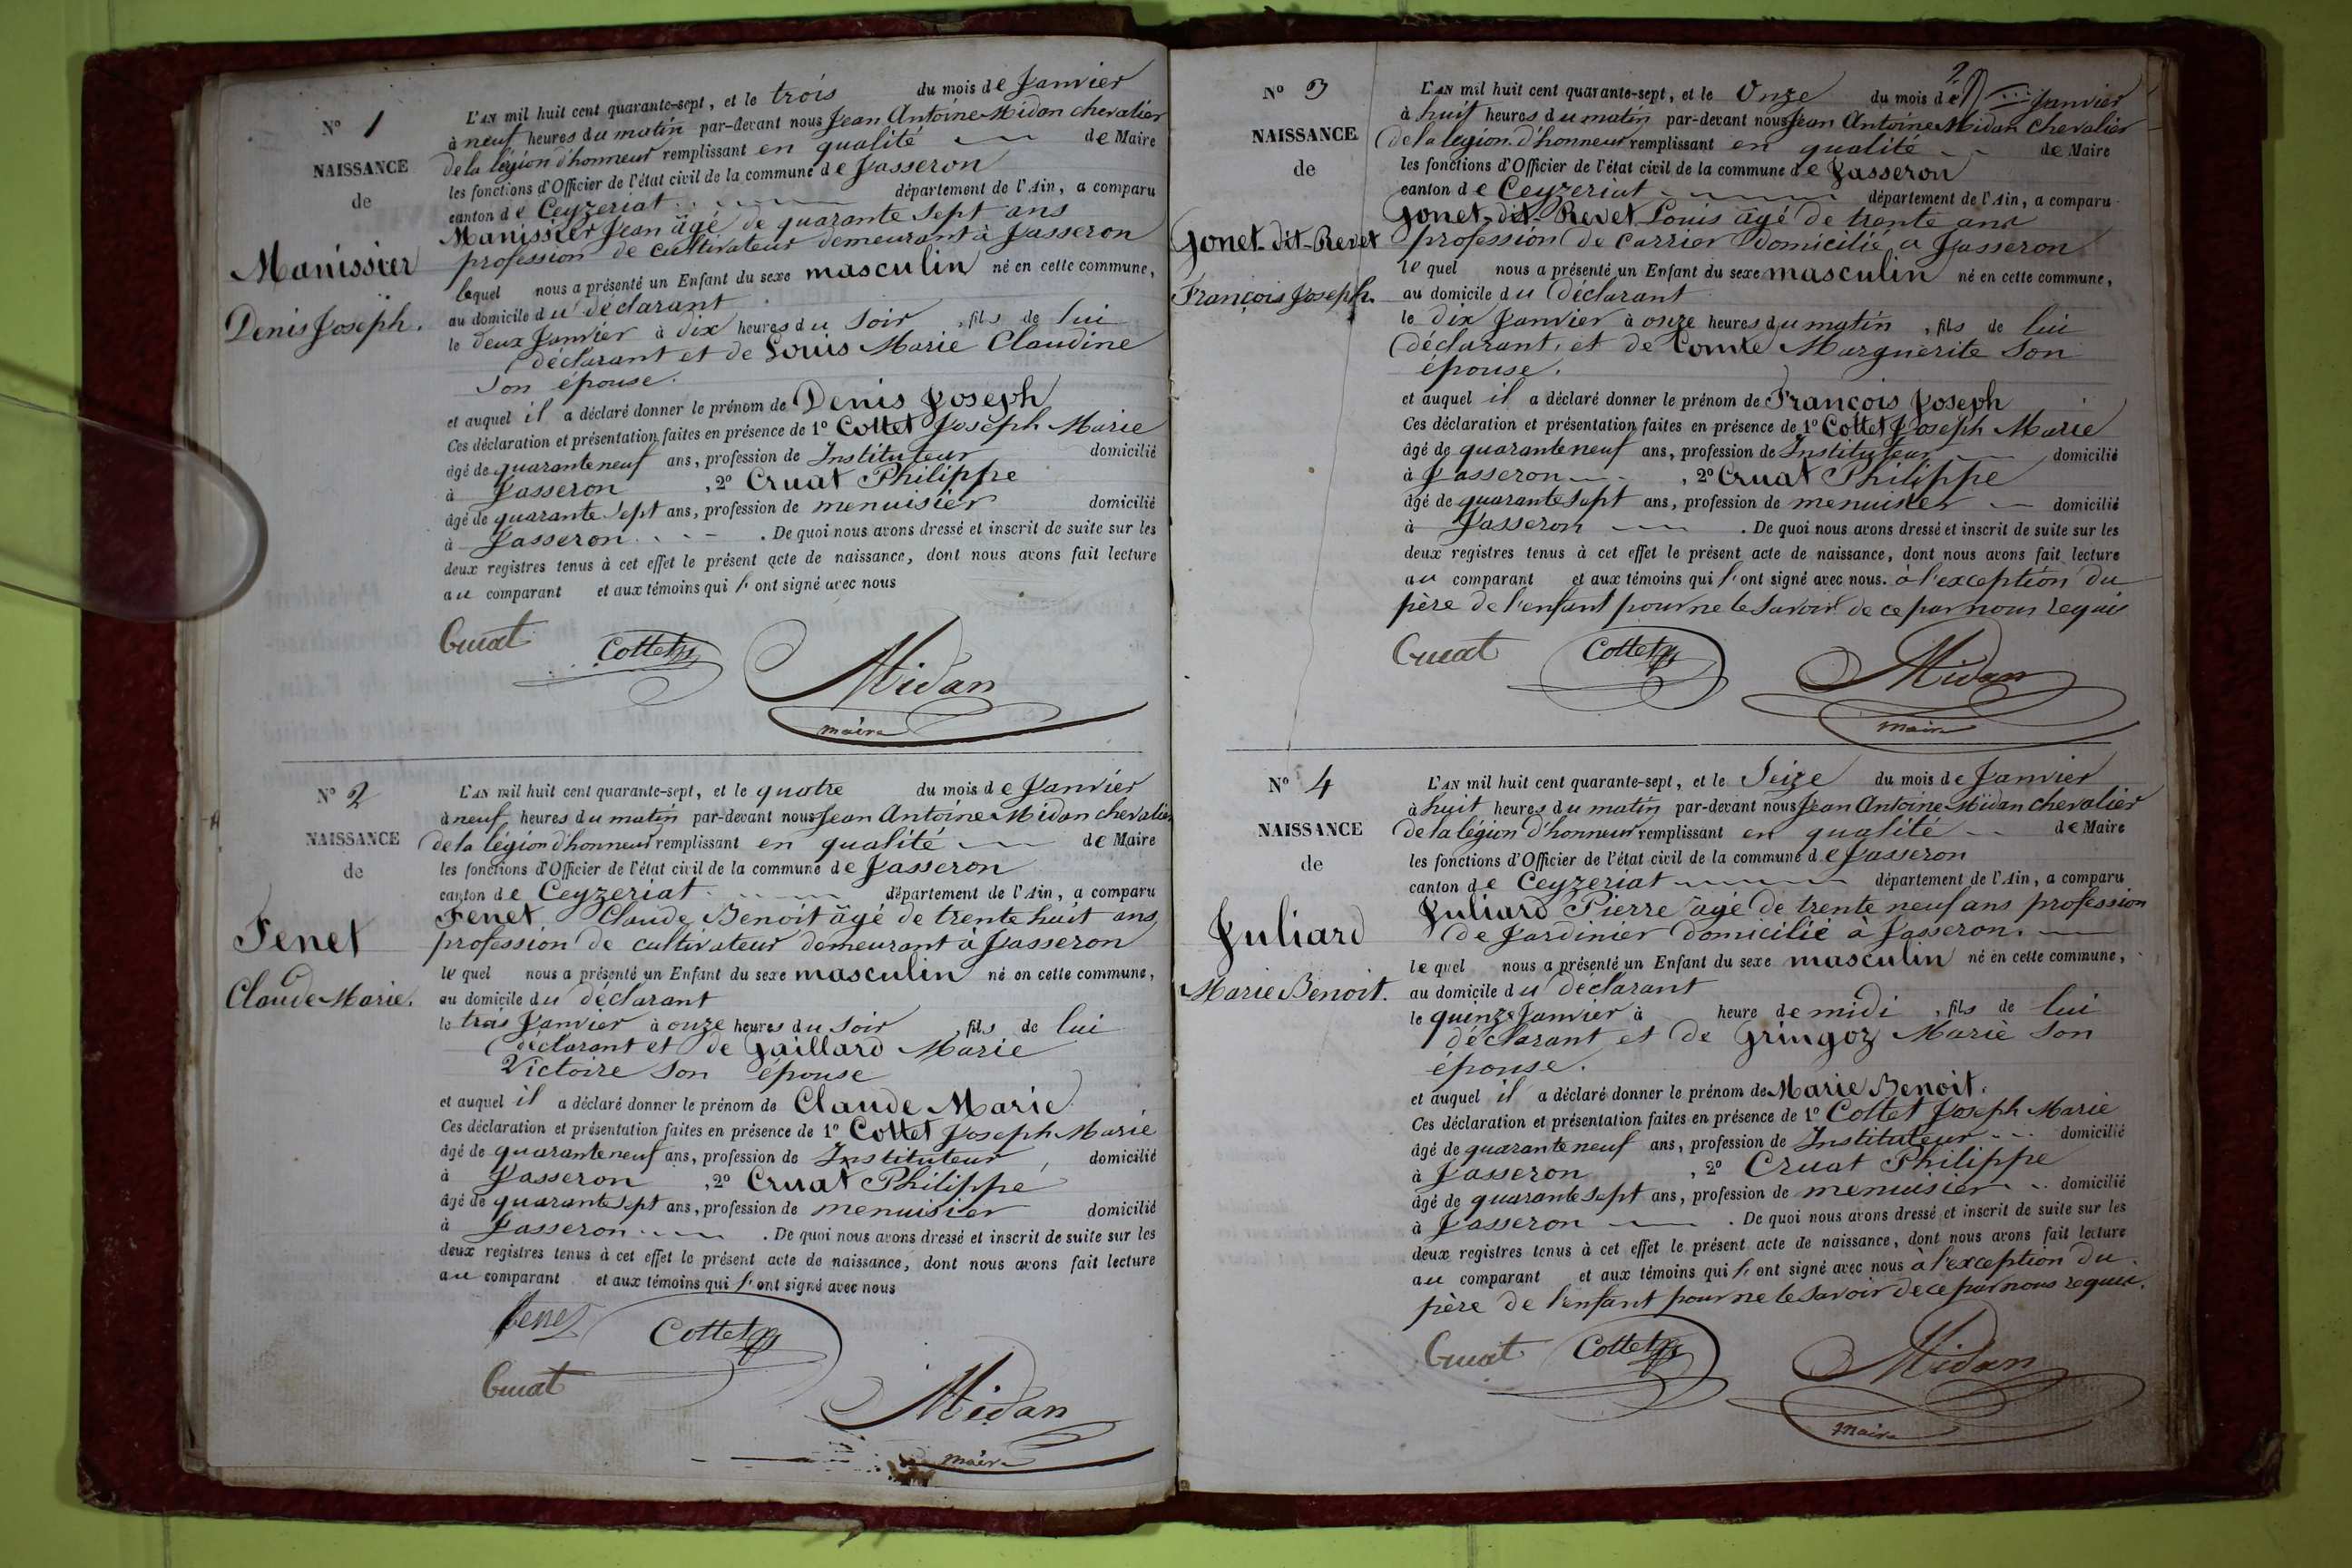 N° 1
NAISSANCE
de
Manissier
Denis Joseph.
L'AN mil huit cent quarante-sept, et le trois du mois de Janvier
à neuf heures du matin par-devant nous Jean Antoine Midan chevalier
de la légion d'honneur remplissant en qualité de Maire
les fonctions d'Officier de l'état civil de la commune de Jasseron
canton de Ceyzeriat département de l'Ain, a comparu
Manissier Jean âgé de quarante sept ans
profession de cultivateur demeurant à Jasseron
lequel nous a présenté un Enfant du sexe masculin né en cette commune,
au domicile du déclarant
le deux Janvier à dix heures du Soir, fils de lui
déclarant et de Louis Marie Claudine
son épouse.
et auquel il a déclaré donner le prénom de Denis Joseph
Ces déclaration et présentation faites en présence de 1° Cottet Joseph Marie
âgé de quarante neuf ans, profession de Instituteur domicilié
à Jasseron, 2° Cruat Philippe
âgé de quarante sept ans, profession de menuisier domicilié
à Jasseron. De quoi nous avons dressé et inscrit de suite sur les
deux registres tenus à cet effet le présent acte de naissance, dont nous avons fait lecture
au comparant et aux témoins qui l'ont signé avec nous
Cruat Cottet Midan
maire
N° 2
NAISSANCE
de
Fenet
Claude Marie.
L'AN mil huit cent quarante-sept, et le quatre du mois de Janvier
à neuf heures du matin par-devant nous Jean Antoine Midan chevalier
de la légion d'honneur remplissant en qualité de Maire
les fonctions d'Officier de l'état civil de la commune de Jasseron
canton de Ceyzeriat département de l'Ain, a comparu
Fenet Claude Benoit âgé de trente huit ans,
profession de cultivateur demeurant à Jasseron
lequel nous a présenté un Enfant du sexe masculin né en cette commune,
au domicile du déclarant
le trois Janvier à onze heures du Soir, fils de lui
déclarant et de Gaillard Marie
Victoire son épouse
et auquel il a déclaré donner le prénom de Claude Marie
Ces déclaration et présentation faites en présence de 1° Cottet Joseph Marie
âgé de quarante neuf ans, profession de Instituteur, domicilié
à Jasseron, 2° Cruat Philippe
âgé de quarante sept ans, profession de menuisier domicilié
à Jasseron. De quoi nous avons dressé et inscrit de suite sur les
deux registres tenus à cet effet le présent acte de naissance, dont nous avons fait lecture
au comparant et aux témoins qui l'ont signé avec nous
Fenet Cottet
Cruat Midan
maire
2
N° 3
NAISSANCE
de
Gonet-dit-Revet
François Joseph.
L'AN mil huit cent quarante-sept, et le Onze du mois de Janvier
à huit heures du matin par-devant nous Jean Antoine Midan chevalier
de la légion d'honneur remplissant en qualité de Maire
les fonctions d'Officier de l'état civil de la commune de Jasseron
canton de Ceyzeriat département de l'Ain, a comparu
Gonet-dit-Revet Louis âgé de trente ans
profession de carrier domicilié à Jasseron
lequel nous a présenté un Enfant du sexe masculin né en cette commune,
au domicile du déclarant
le dix Janvier à onze heures du matin, fils de lui
déclarant, et de Comte Marguerite son
épouse.
et auquel il a déclaré donner le prénom de François Joseph
Ces déclaration et présentation faites en présence de 1° Cottet Joseph Marie
âgé de quarante neuf ans, profession de Instituteur domicilié
à Jasseron, 2° Cruat Philippe
âgé de quarante sept ans, profession de menuisier domicilié
à Jasseron. De quoi nous avons dressé et inscrit de suite sur les
deux registres tenus à cet effet le présent acte de naissance, dont nous avons fait lecture
au comparant et aux témoins qui l'ont signé avec nous. à l'exception du
père de l'enfant pour ne le savoir de ce par nous requis
Cruat Cottet Midan
maire
N° 4
NAISSANCE
de
Juliard
Marie Benoit.
L'AN mil huit cent quarante-sept, et le Seize du mois de Janvier
à huit heures du matin par-devant nous Jean Antoine Midan chevalier
de la légion d'honneur remplissant en qualité de Maire
les fonctions d'Officier de l'état civil de la commune de Jasseron
canton de Ceyzeriat département de l'Ain, a comparu
Juliard Pierre âgé de trente neuf ans profession
de Jardinier domicilié à Jasseron.
lequel nous a présenté un Enfant du sexe masculin né en cette commune,
au domicile du déclarant
le quinze Janvier à heure de midi, fils de lui
déclarant et de Gringoz Marie son
épouse.
et auquel il a déclaré donner le prénom de Marie Benoit.
Ces déclaration et présentation faites en présence de 1° Cottet Joseph Marie
âgé de quarante neuf ans, profession de Instituteur domicilié
à Jasseron, 2° Cruat Philippe
âgé de quarante sept ans, profession de menuisier domicilié
à Jasseron. De quoi nous avons dressé et inscrit de suite sur les
deux registres tenus à cet effet le présent acte de naissance, dont nous avons fait lecture
au comparant et aux témoins qui l'ont signé avec nous à l'exception du
père de l'enfant pour ne le savoir de ce par nous requis.
Cruat Cottet Midan
maire